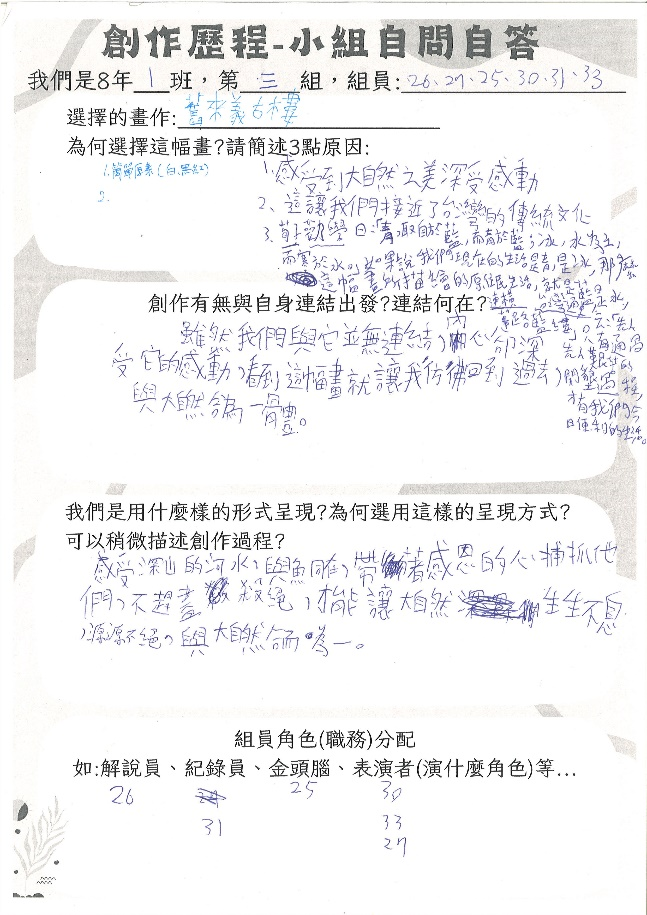 創作歷程-小組自問自答
我們是8年 1 班，第 三 組，組員: 26、27、25、30、31、33
選擇的畫作:
為何選擇這幅畫?請簡述3點原因:
1. 感受到大自然之美深受感動
2、這讓我們接近了台灣的傳統文化
3、勸學曰:青,取自於藍,而青於藍;冰,水為之,
而寒於水。如果說我們現在的生活是青是冰,那麼
這幅畫所描繪的原住民生活,就是
創作有無與自身連結出發?連結何在?
雖然我們與它並無連結,內心卻深
受它的感動,看到這幅畫就讓我彷彿回到過去,
與大自然合為一體。
才有我們今
日便利的生活。
我們是用什麼樣的形式呈現?為何選用這樣的呈現方式?
可以稍微描述創作過程?
感受深山的河水,與魚群,帶著感恩的心捕抓他
們,不趕盡殺絕,才能讓大自然生生不息
,源源不絕,與大自然合而為一。
組員角色(職務)分配
如:解說員、紀錄員、金頭腦、表演者(演什麼角色)等…
26 25 30
31 33
27